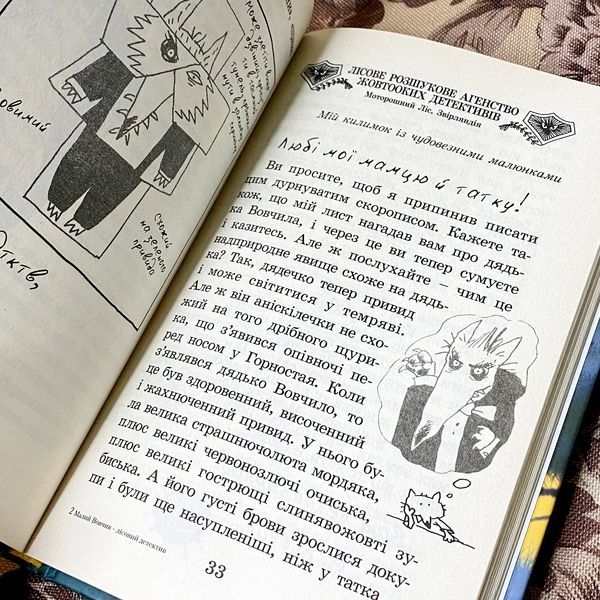 овимий
Схожий
на золоте
привида
Отктв,
ЛІСОВЕ РОЗШУКОВЕ АГЕНСТВО
ЖОВТООКИХ ДЕТЕКТИВІВ
Моторошний Ліс, Звірляндія
Мій килимок із чудовезними малюнками
Любі мої мамцю й татку!
Ви просите, щоб я припинив писати
цим дурнуватим скорописом. Кажете та-
кож, що мій лист нагадав вам про дядь-
ка Вовчила, і через це ви тепер сумуєте
і казитесь. Але ж послухайте – чим це
надприродне явище схоже на дядь-
ка? Так, дядечко тепер привид
і може світитися у темряві.
Але ж він аніскілечки не схо-
жий на того дрібного щури-
ка, що з'явився опівночі пе-
ред носом у Горностая. Коли
з'являвся дядько Вовчило, то
це був здоровенний, височенний
і жахнюченний привид. У нього бу-
ла велика страшнючолюта мордяка,
плюс великі червонозлючі очиська,
плюс великі гострющі слинявожовті зу-
биська. А його густі брови зрослися доку-
пи і були ще насупленіші, ніж у татка
2 Малий Вовчик - лісовий детектив
33